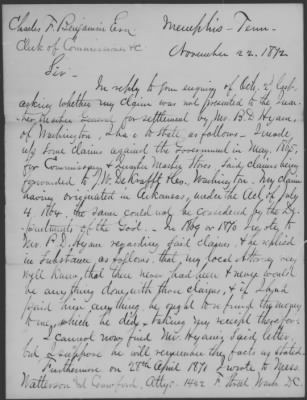 Charles F. Benjamin Esq Memphis - Tenn
Clerk of Commissioners &c November 22. 1872
Sir -
In reply to your enquiry of Oct. 2d
asking whether my claim was not presented to the Quar-
ter Master General for settlement by Mr. P. D. Hyam,
of Washington, I have to state as follows - I made
up some claims against the Government in May, 1865,
for Commissary & Quarter Master Stores Said claims being
forwarded to J. W. DeKrafft Esq. Washington. My claim
having originated in Arkansas, under the Act of July
4. 1864, the same could not be considered by the De-
partments of the Govt. - In 1869 or 1870 I wrote to
Mr. P. D. Hyam regarding said claims, & he replied
in substance as follows. that my local Attorney very
well knew, that there never had been & never would
be anything done with those claims, & if I had
paid him anything, he ought to refund the money
to me, which he did - taking my receipt therefor.
I cannot now find Mr. Hyam's said letter,
but I suppose he will remember the facts as stated
Furthermore on 28th April 1871 I wrote to Mess
Watterson and Crawford, Attys. 1402 F Street Wash D.C.